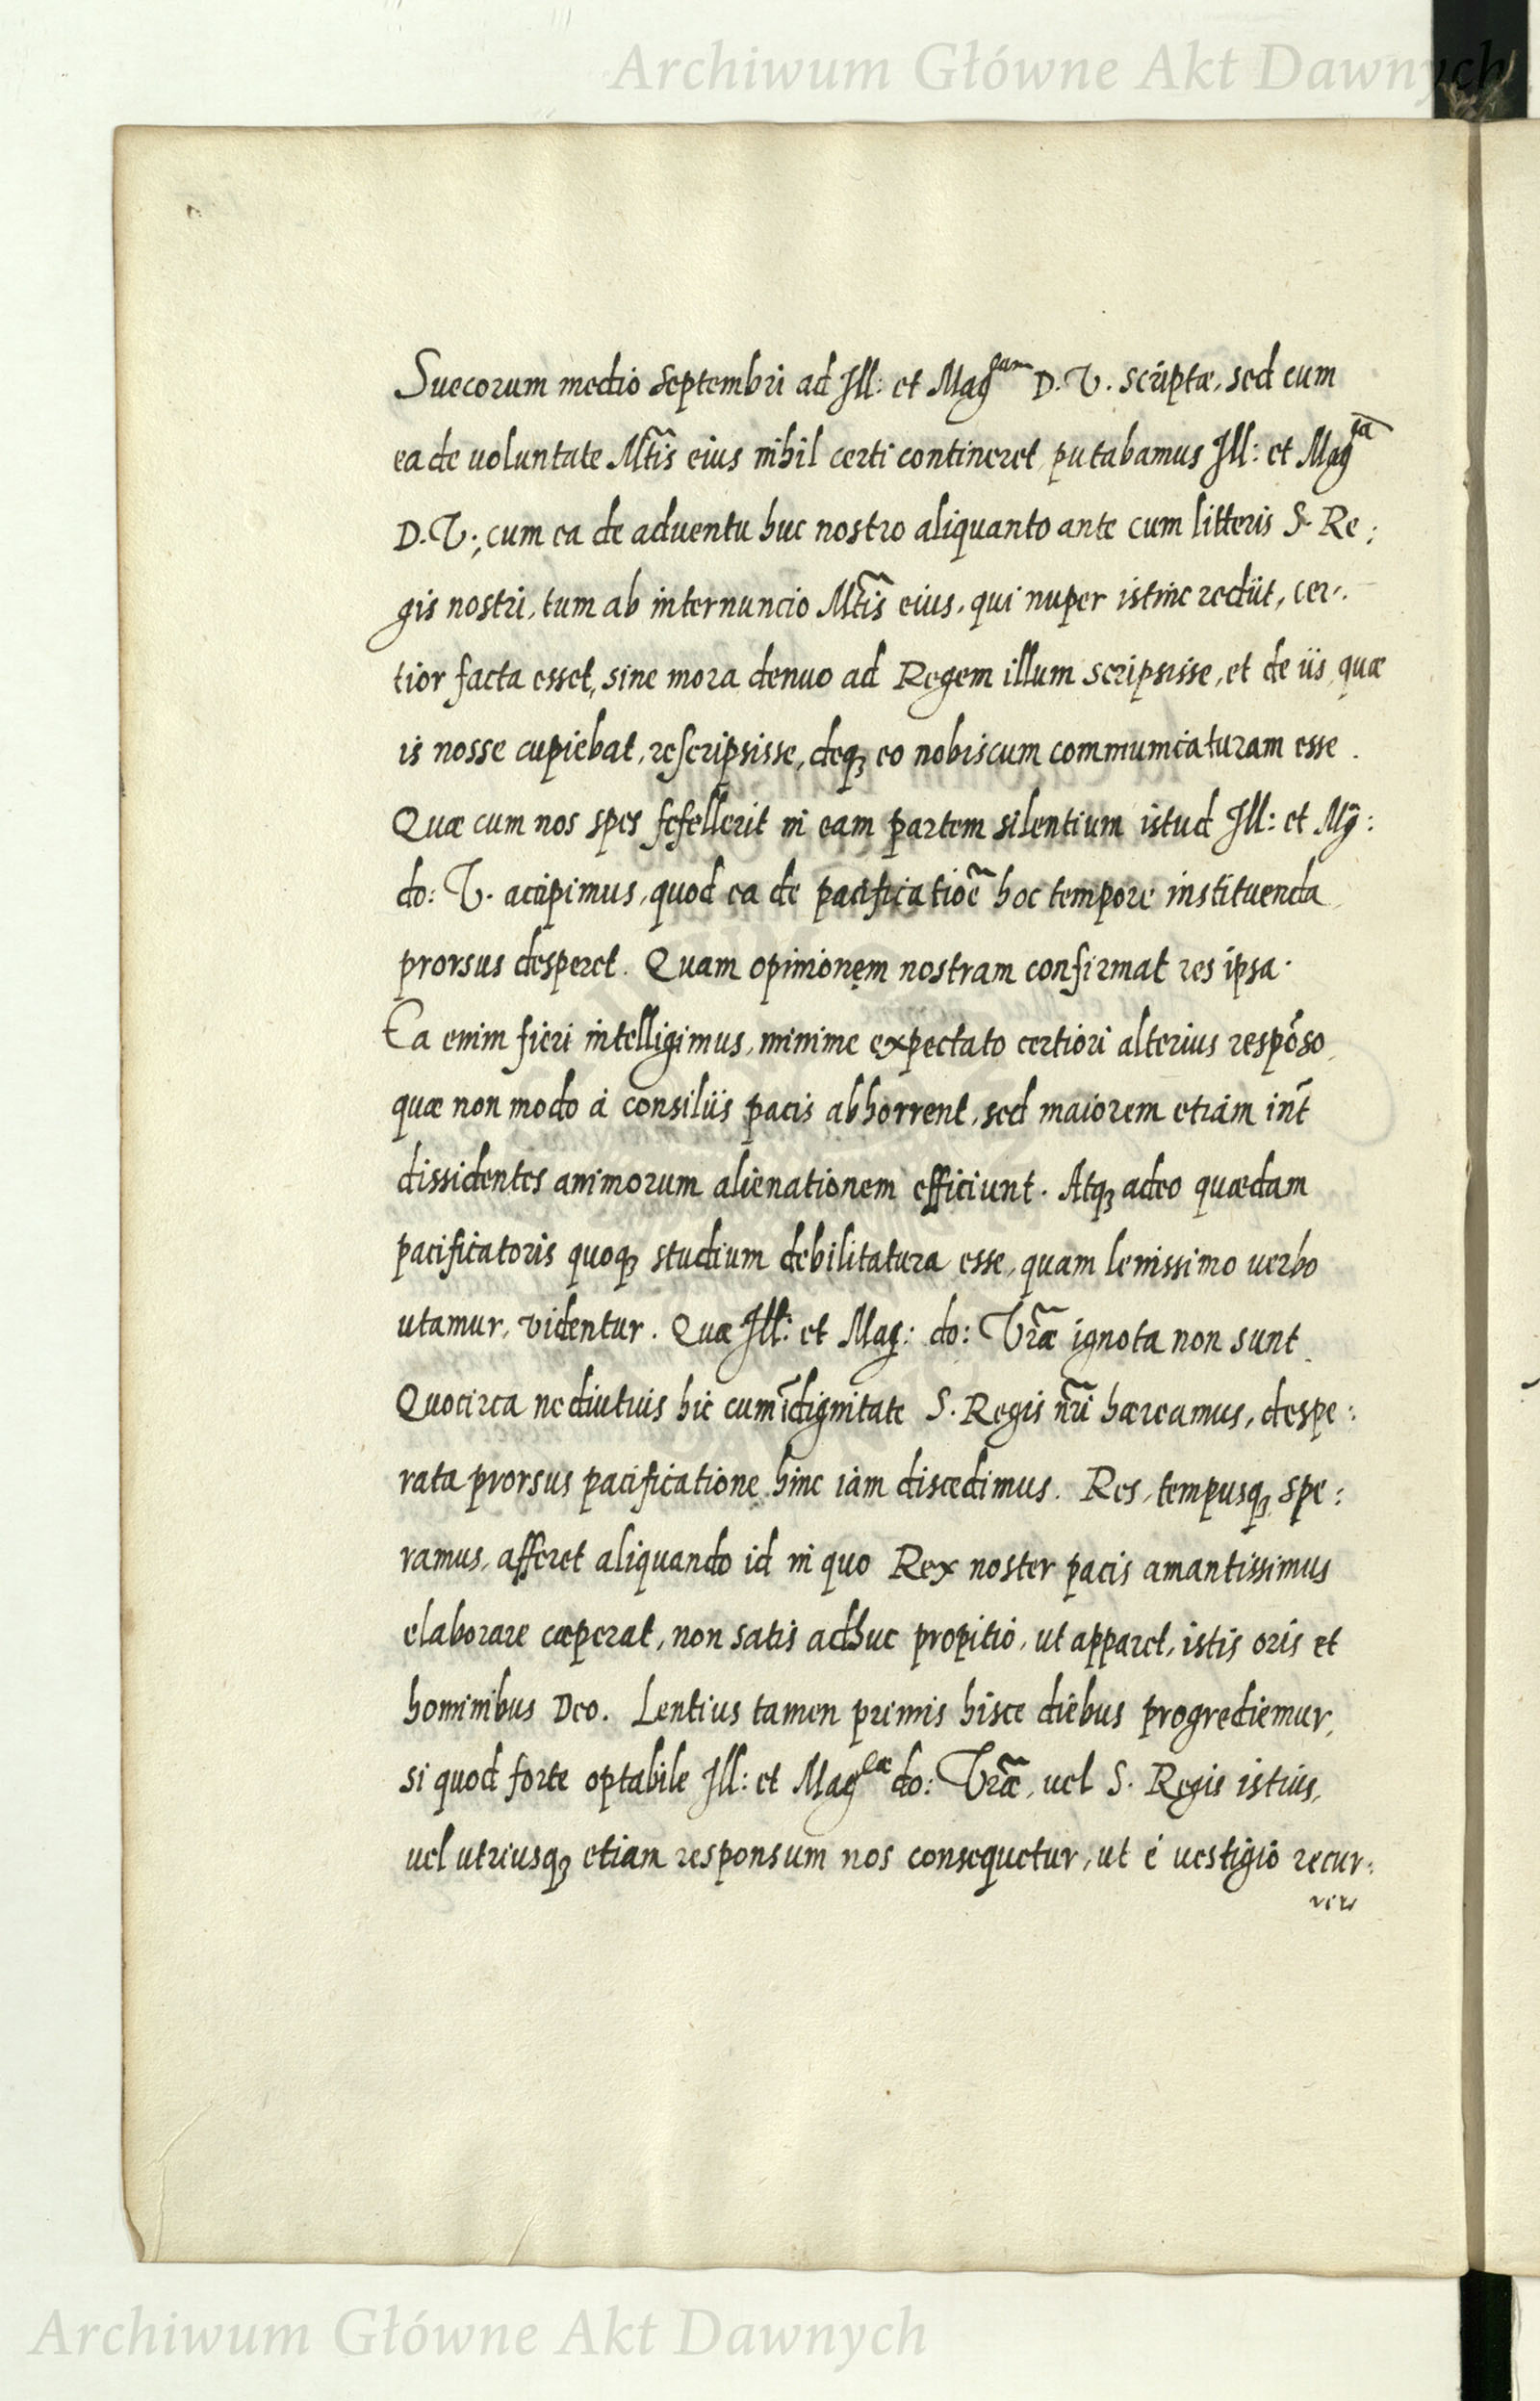 Archiwum Główne Akt Dawnych
Suecorum medio Septembri ad Ill: et Mag^cam D. V. scriptæ, sed cum
ea de uoluntate Mt̃is eius nihil certi contineret, putabamus Ill: et Mag^ca
D. V., cum ea de aduentu huc nostro aliquanto ante cum litteris S. Re:
gis nostri, tum ab internuncio Mt̃is eius, qui nuper istinc redijt, cer:
tior facta esset, sine mora denuo ad Regem illum scripsisse, et de iis, quæ
is nosse cupiebat, rescripsisse, deq₃ eo nobiscum communicaturam esse.
Quæ cum nos spes fefellerit in eam partem silentium istud Ill: et Mg̃:
do: V. accipimus, quod ea de pacificatiõe hoc tempore instituenda
prorsus desperet. Quam opinionem nostram confirmat res ipsa.
Ea enim fieri intelligimus, minime expectato certiori alterius respõso,
quæ non modo à consiliis pacis abhorrent, sed maiorem etiam int̃
dissidentes animorum alienationem efficiunt. Atq₃ adeo quædam
pacificatoris quoq₃ studium debilitatura esse, quam lenissimo uerbo
utamur, videntur. Quæ Ill: et Mag: do: Vr̃æ ignota non sunt.
Quocirca ne diutius hic cum ĩdignitate S. Regis nr̃i hæreamus, despe:
rata prorsus pacificatione hinc iam discedimus. Res, tempusq₃, spe:
ramus, afferet aliquando id in quo Rex noster pacis amantissimus
elaborare cœperat, non satis adhuc propitio, ut apparet, istis oris et
hominibus Deo. Lentius tamen primis hisce diebus progrediemur,
si quod forte optabile Ill: et Mag^cæ do: Vr̃æ, uel S. Regis istius,
uel utriusq₃ etiam responsum nos consequetur, ut è uestigio recur:
Archiwum Główne Akt Dawnych